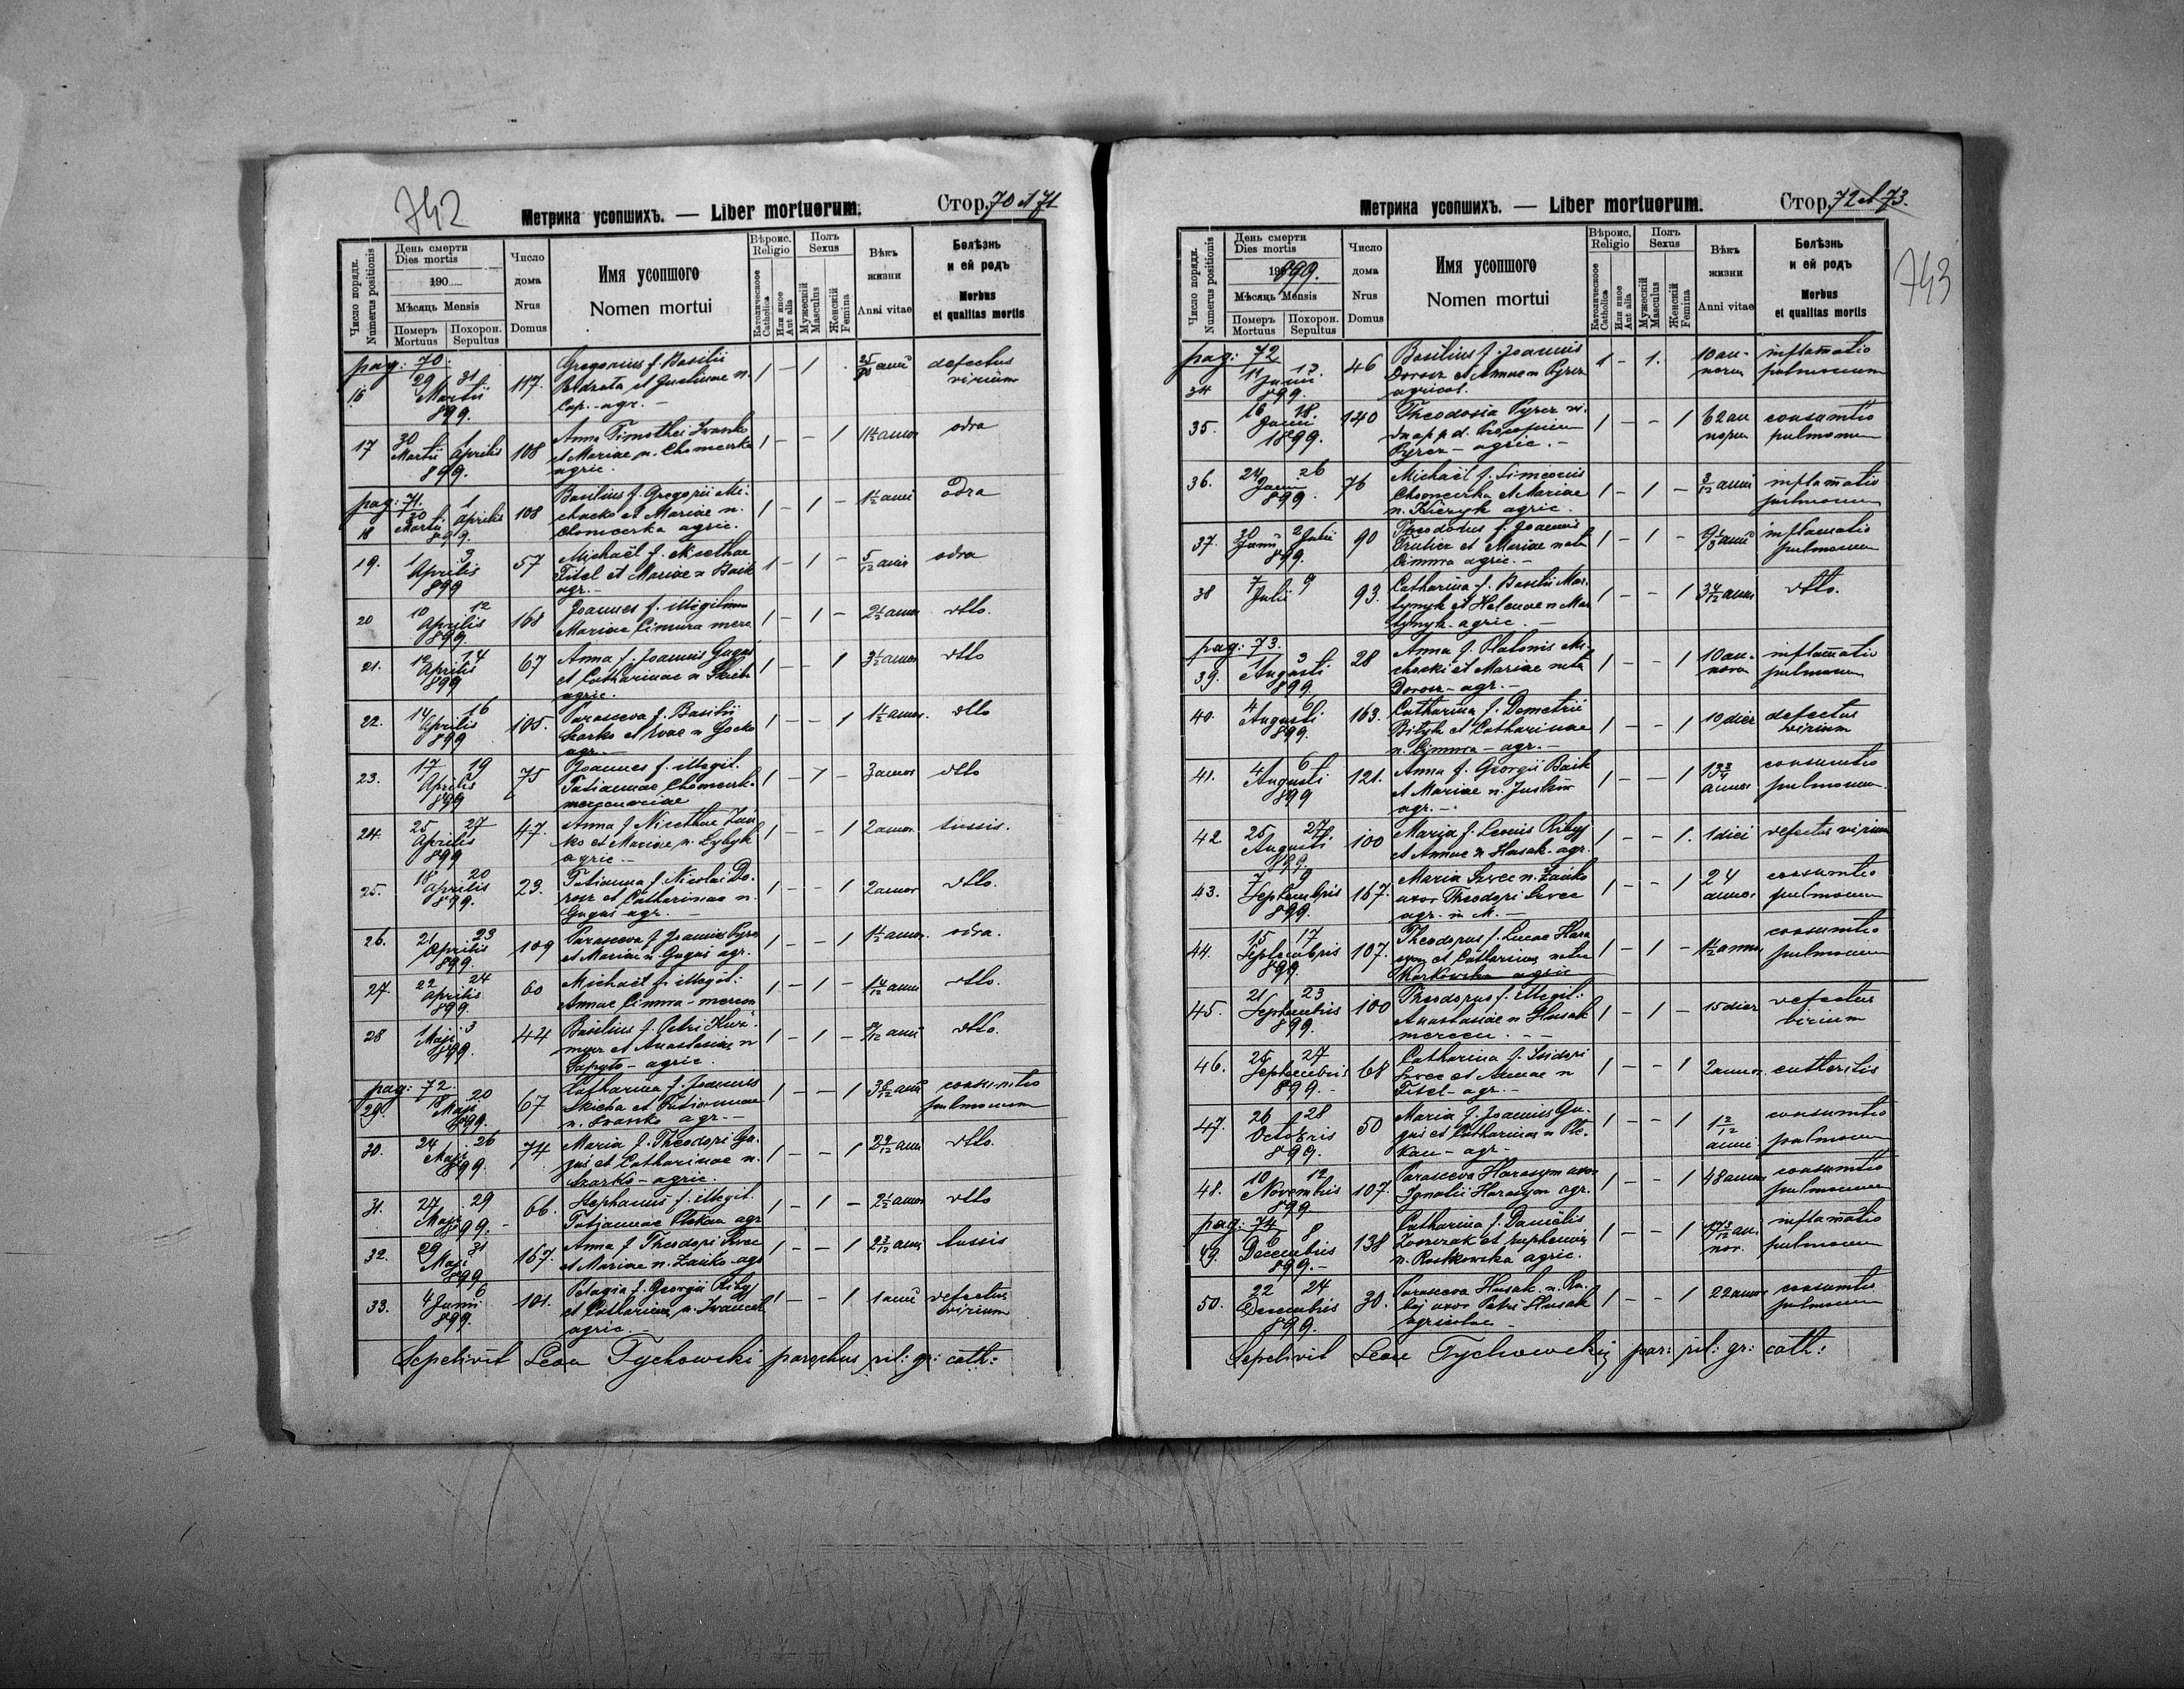 742
Метрика усопшихъ. — Liber mortuorum.
Стор. 70 et 71
Число порядк.
Numerus positionis
День смерти
Dies mortis
190
Мѣсяць Mensis
Померъ Mortuus
Похорон. Sepultus
Число дома
Nrus Domus
Имя усопшого
Nomen mortui
Вѣроис. Religio
Католическое Catholica
Или иное Aut alia
Полъ Sexus
Мужескій Masculus
Женскій Femina
Вѣкъ жизни
Anni vitae
Болѣзнь и ей родъ
Morbus et qualitas mortis
pag: 70.
16 29 31 Martii 899. 117. Gregorius f. Basilii
et Justinae n.
Cap. - agr. - 1 - 1 defectus virium
17 30 Martii 1 Aprilis 899. 108 Anna Timothei Iwanko
et Mariae n. Chomerka
agric. 1 - - 1 1 1/2 annor odra
pag: 71.
18 30 Martii 1 Aprilis 899. 108 Basilius f. Gregorii Mi-
chacko et Mariae n.
Chomerka agric. 1 - 1 - 1 1/2 anni odra
19. 1 3 Aprilis 899 57 Michaël f. Nicethae
Titel et Mariae n Baik
agr. - 1 - 1 - 5/12 anni odra
20 10 12 Aprilis 899. 168 Joannes f. illegitimus
Mariae Cimura merc 1 - 1 - 2 1/2 annor dtto.
21. 12 14 Aprilis 899 67 Anna f. Joannis Gugus
et Catharinae n Skich
agric. 1 - - 1 3 1/2 annor dtto
22. 14 16 Aprilis 899 105. Parasceva f. Basilii
Szarko et Evae n Gocko
agr. - 1 - - 1 1 1/2 annor. dtto
23. 17 19 Aprilis 899 75 Joannes f. illegit.
Tatiannae Chomerk.
mercenariae 1 - 1 - 3 annor dtto
24. 25 27 Aprilis 899 47. Anna f Nicethae Zań
ko et Mariae n. Lybyk
agric - 1 - - 1 2 annor tussis.
25. 18 20 Aprilis 899. 23. Tatianna f. Nicolai Do-
rosz et Catharinae n.
Gugus agr. - 1 - - 1 2 annor dtto.
26. 21 23 Aprilis 899. 109 Parasceva f Joannis Pyrcz
et Mariae n. Gugus agr. 1 - - 1 1 1/2 annor. odra.
27. 22 24 Aprilis 899. 60 Michaël f. illegit:
Annae Cimura - mercen 1 - 1 - 1 4/12 anni dtto.
28 1 3 Maji 899. 44 Basilius f. Petri
et Anastasiae n
Sapyto - agric. 1 - 1 - dtto.
pag: 72.
29. 18 20 Maji 899. 67 Catharina f. Joannis
Skicha et Tatiannae
n. Iwanko agr. - 1 - - 1 consumtio pulmonum
30. 24 26 Maji 899. 74 Maria f. Theodori Gu-
gus et Catharinae n.
Szarko - agric. 1 - - 1 dtto.
31. 27 29 Maji 899. 66. Stephanus f. illegit.
Tatjannae Plekan agr 1 - 1 - 2 1/2 annor dtto
32. 29 31 Maji 899 167. Anna f Theodori Szwec
et Mariae n. Zańko agr 1 - - 1 2 3/12 anni tussis
33. 4 6 Junii 899. 101. Pelagia f. Georgii Ribyj
et Catharinae n. 
agric - 1 - - 1 1 anni defectus virium
Sepelivit Leon Tychowski parochus rit: gr: cath:
743
Метрика усопшихъ. — Liber mortuorum.
Стор. 72 et 73.
Число порядк.
Numerus positionis
День смерти
Dies mortis
190 899.
Мѣсяць Mensis
Померъ Mortuus
Похорон. Sepultus
Число дома
Nrus Domus
Имя усопшого
Nomen mortui
Вѣроис. Religio
Католическое Catholica
Или иное Aut alia
Полъ Sexus
Мужескій Masculus
Женскій Femina
Вѣкъ жизни
Anni vitae
Болѣзнь и ей родъ
Morbus et qualitas mortis
pag: 72
34 11 13. Junii 899. 46 Basilius f. Joannis
Dorosz et Annae n Pyrcz
agricol. 1 - 1. 10 annorum inflamatio pulmonum
35. 16 18. Junii 1899. 140 Theodosia Pyrcz vi-
dua p. p. d. Procopium
Pyrcz - agric. - 1 - - 1 62 annorum consumtio pulmonum
36. 24 26 Junii 899. 76 Michaël f. Simeonis
Chomerka et Mariae
n. Kiczyk agric. 1 - 1 - 3/12 anni inflamatio pulmonum
37. 30 Junii 2 Julii 899. 90 Theodorus f. Joannis
et Mariae nata
Cimura agric. - 1 - 1 - inflamatio pulmonum
38 7 9 Julii 93. Catharina f. Basilii Mar-
tynyk et Helenae n Mar
tynyk - agric. - 1 - - 1 3 4/12 annor dtto.
pag: 73.
39. 1 3 Augusti 899. 28 Anna f. Platonis Mi-
chacki et Mariae nata
Dorosz - agr. - 1 - - 1 10 annorum inflamatio pulmonum
40. 4 6 Augusti 899. 163. Catharina f. Demetrii
Bityk et Catharinae
n. Cymura - agr. - 1 - - 1 10 dier defectus virium
41. 4 6 Augusti 899 121. Anna f. Georgii Baik
et Mariae n. Juskiw
agr. - 1 - - 1 1 3/4 annor consumtio pulmonum.
42 25 27 Augusti 899. 100 Maria f. Leonis Ribyj
et Annae n Husak - agr. 1 - - 1. 1 diei defectus virium
43. 7 9 Septembris 899. 167. Maria Szwec n. Zańko
uxor Theodori Szwec
agr. in M. - 1 - - 1 24 annor consumtio pulmonum
44. 15 17 Septembris 899. 107. Theodorus f. Lucae Hara
sym et Catharinae nata
Markowska agric 1 - 1 - 1 1/2 annor consumtio pulmonum
45. 21 23 Septembris 899. 100 Theodorus f. illegit:
Anastasiae n Husak
mercen. - 1 - 1 - 15 dier defectus virium
46. 25 27 Septembris 899. - 68 Catharina f. Isidori
Szwec et Annae n
Titel - agr. - 1 - - 1 2 annor. entheritis
47. 26 28 Octobris 899. 50 Maria f. Joannis Gu-
gus et Catharinae n Ple-
kan - agr - 1 - - 1 1 2/12 anni consumtio pulmonum
48. 10 12 Novembris 899 107. Parasceva Harasym uxor
Ignatii Harasym agr. 1 - - 1 48 annor consumtio pulmonum
pag: 74
49. 6 8 Decembris 899. - 138 Catharina f. Danielis
et Eupheniae
n. Rutkowska agric. 1 - - 1 inflamatio pulmonum
50. 22 24 Decembris 899. 30. Parasceva Husak n. Ri-
byj uxor Petri Husak
agricolae - 1 - - 1 22 annor consumtio pulmonum
Sepelivit Leon Tychowskij par: rit: gr: cath: